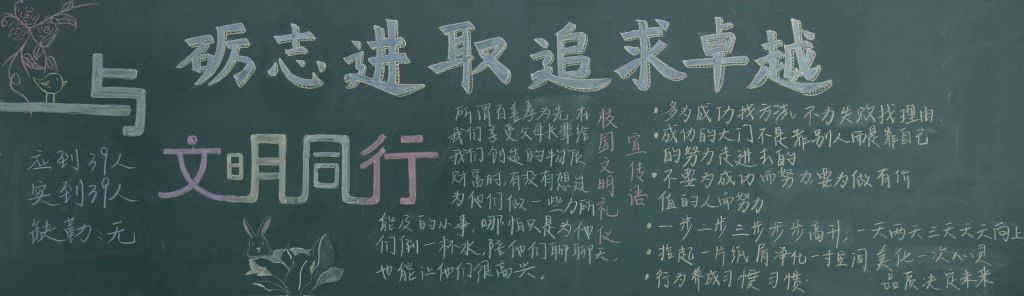 砺志进取追求卓越
与
文明同行
应到39人
实到39人
缺勤:无
所谓百善孝为先,在
我们享受父母长辈给
我们创造的物质
财富时,有没有想过
为他们做一些力所
能及的小事,哪怕只是为他
们倒一杯水,陪他们聊聊天,
也能让他们很高兴。
校园文明礼仪
宣传语
·多为成功找方法,不为失败找理由.
·成功的大门不是靠别人而是靠自己
的努力走进去的
·不要为成功而努力要为做有价
值的人而努力
·一步二步三步步步高升,一天两天三天天天向上
·拾起一片纸屑净化一寸空间美化一次心灵
·行为养成习惯习惯 品质决定未来